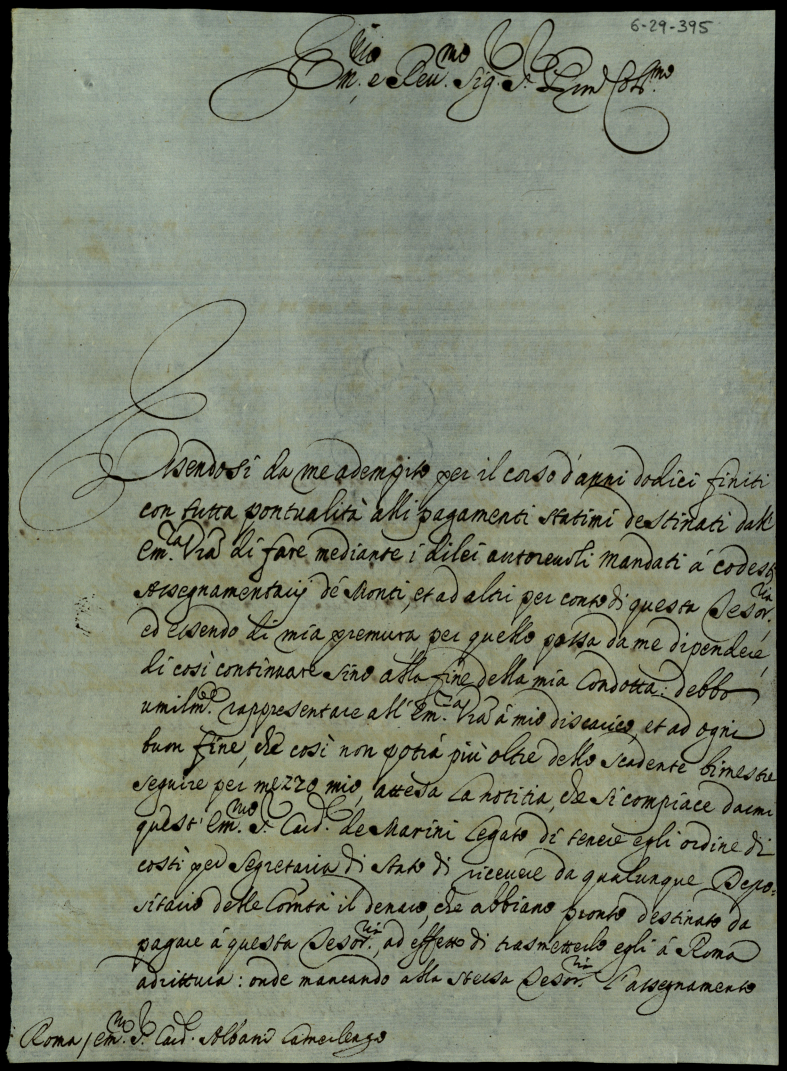 6-29-395
Em.mo e Reu.mo Sig. S. Pron Col.mo
Essendosi da me adempito per il corso d'anni dodici finiti
con tutta pontualità alli pagamenti statimi destinati dall'
Em.za Vra di fare mediante i dilei autoreuoli Mandati á codesti
Assegnamentarij dé Monti, et ad altri per conto di questa Tesor.ria,
ed essendo di mia premura per quello possa da me dipendere,
di così continuare sino alla fine della mia Condotta: debbo
umilm.te rappresentare all'Em.za Vra á mio discarico, et ad ogni
buon fine, che così non potrà più oltre dello scadente bimestre
seguire per mezzo mio, attesa la notitia, che si compiace darmi
quest'Em.mo S. Card. de Marini Legato di tenere egli ordine di
costì per Segretaria di Stato di riceuere da qualunque Depo=
sitario delle Com̃tà il denaro, che abbiano pronto destinato da
pagare á questa Tesor.ria, ad effetto di trasmetterlo egli á Roma
adrittura: onde mancando alla stessa Tesor.ria l'assegnamento
Roma / Em.mo S. Card. Albani Camerlengo